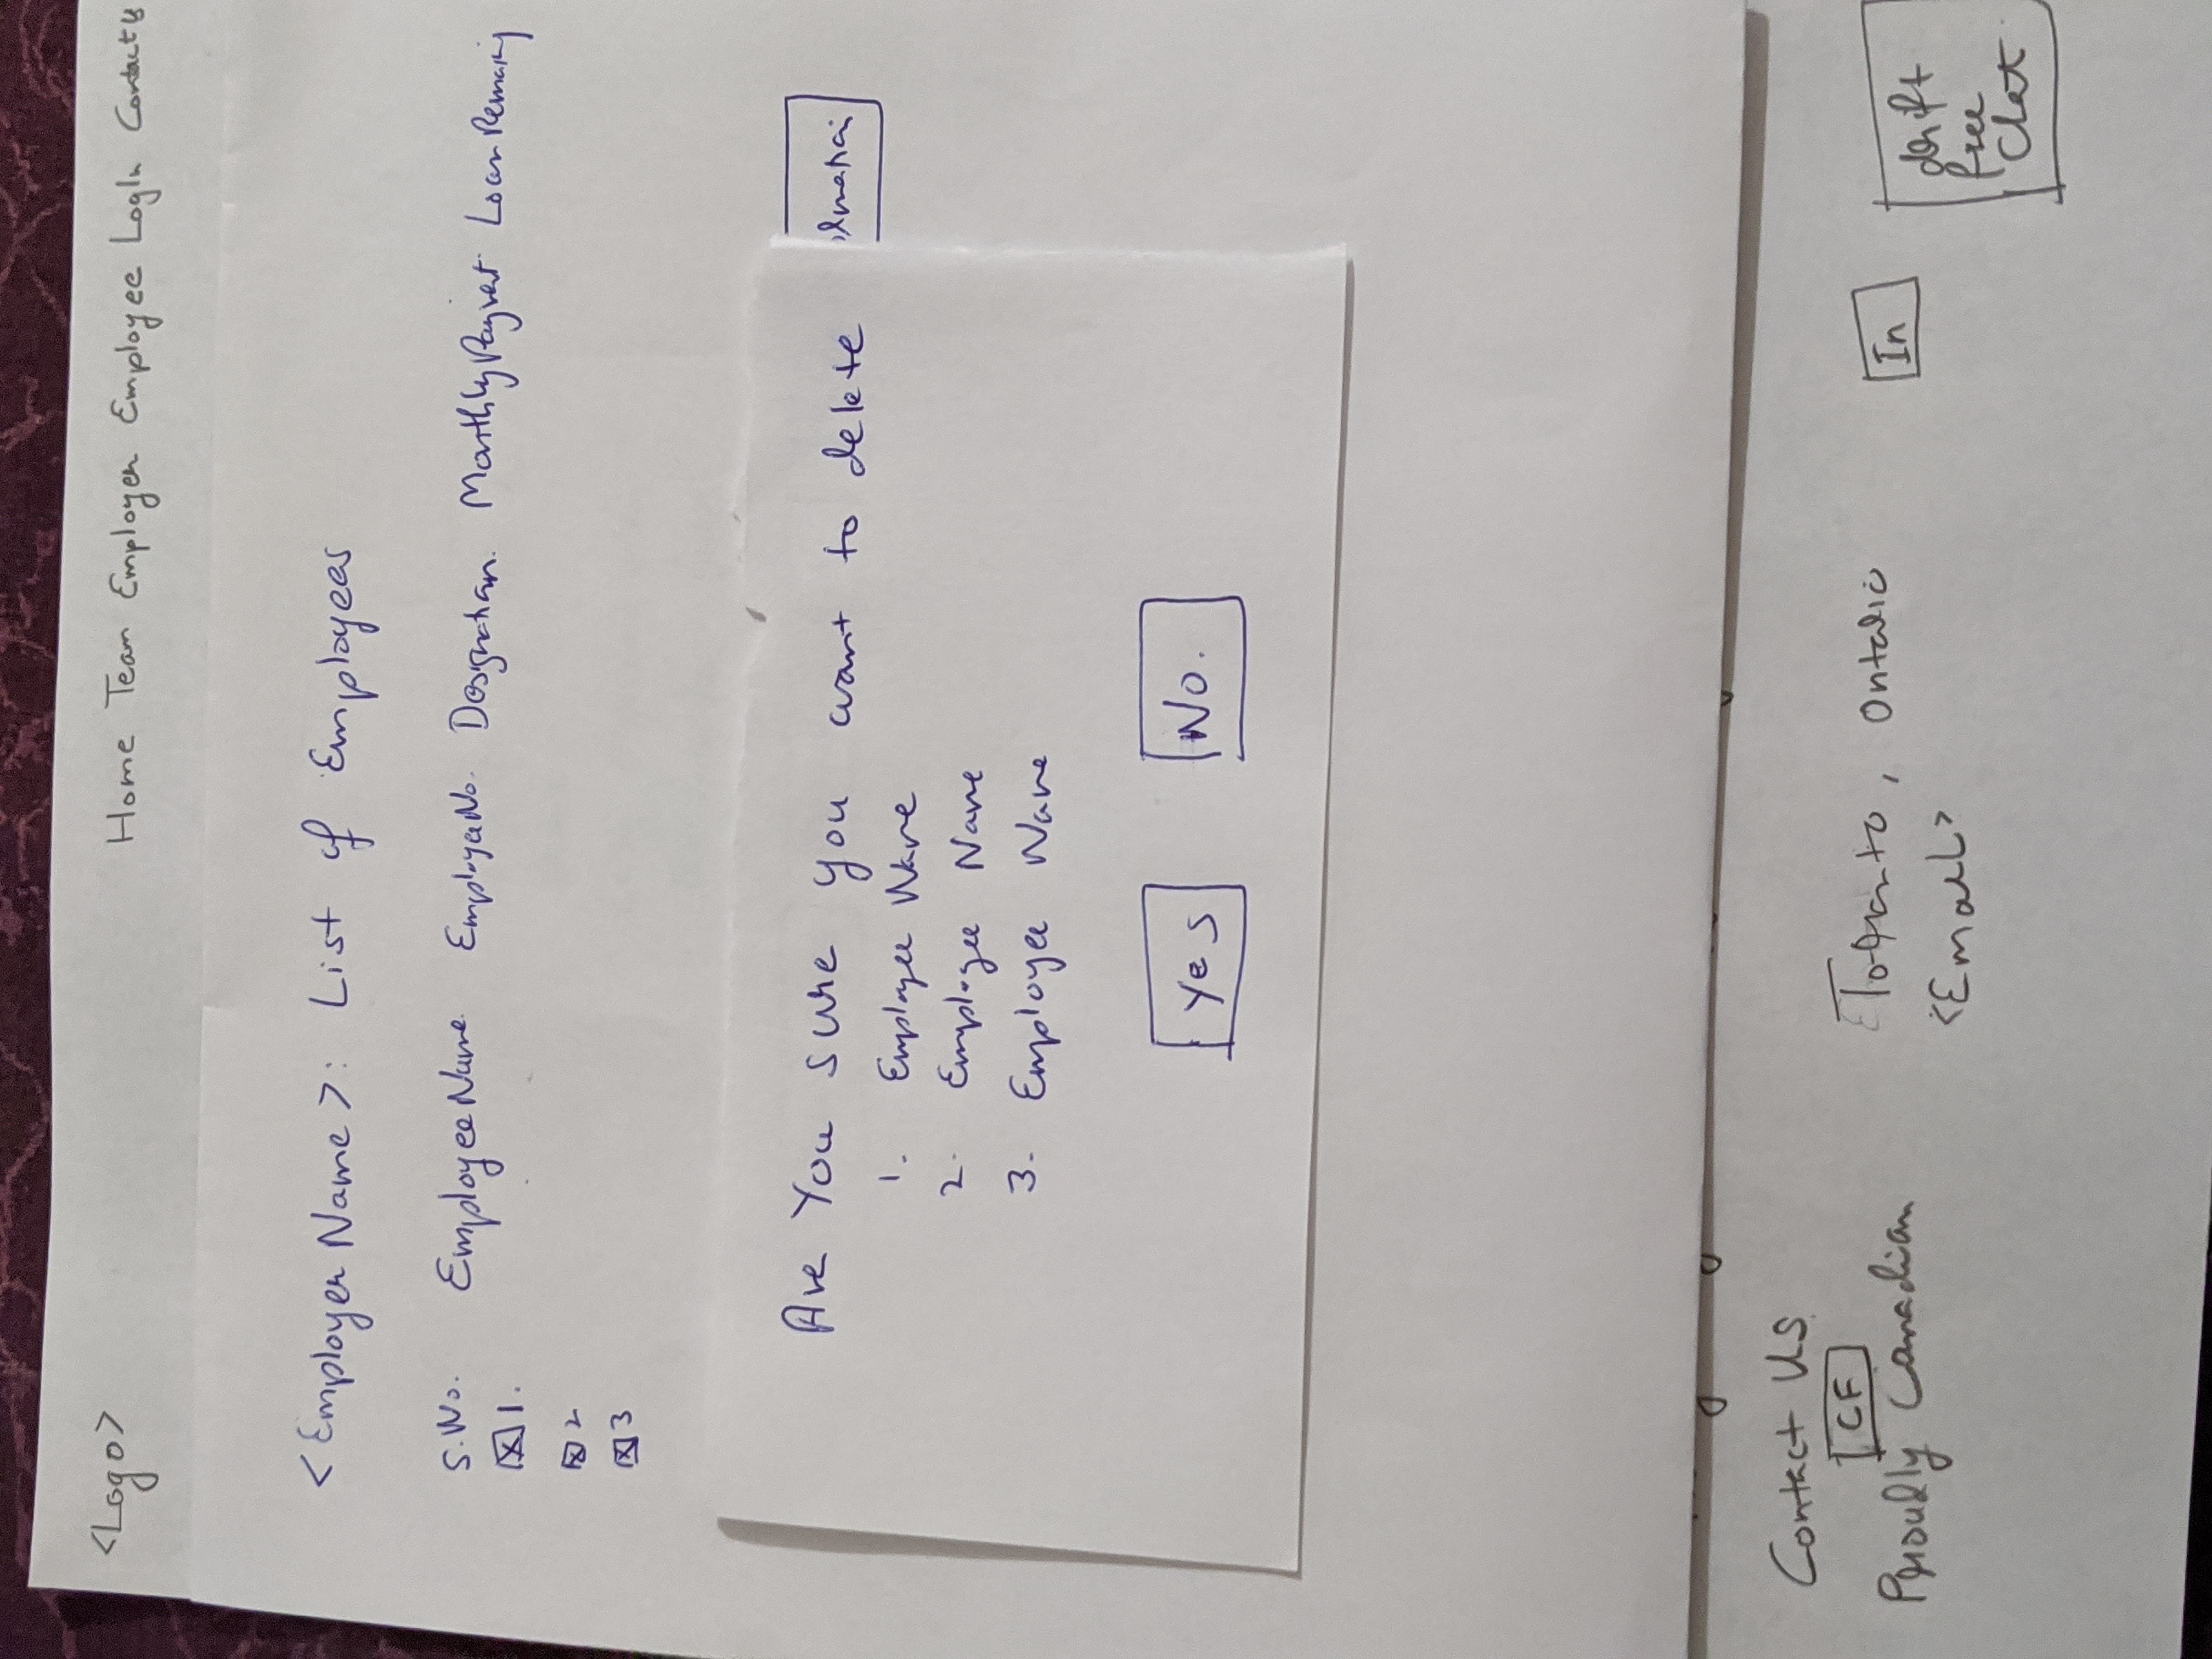 <Logo> Home Team Employer Employee LogIn Contact Us
<Employer Name>: List of Employees
S.No. Employee Name Employee No. Designation. Monthly Payment Loan Remaining
☒ 1.
☒ 2
☒ 3
Are You sure you want to delete
1. Employee Name
2. Employee Name
3. Employee Name
Yes No.
Contact Us
CF
Proudly Canadian
Toronto, Ontario
<Email>
In
drift
free
Chat